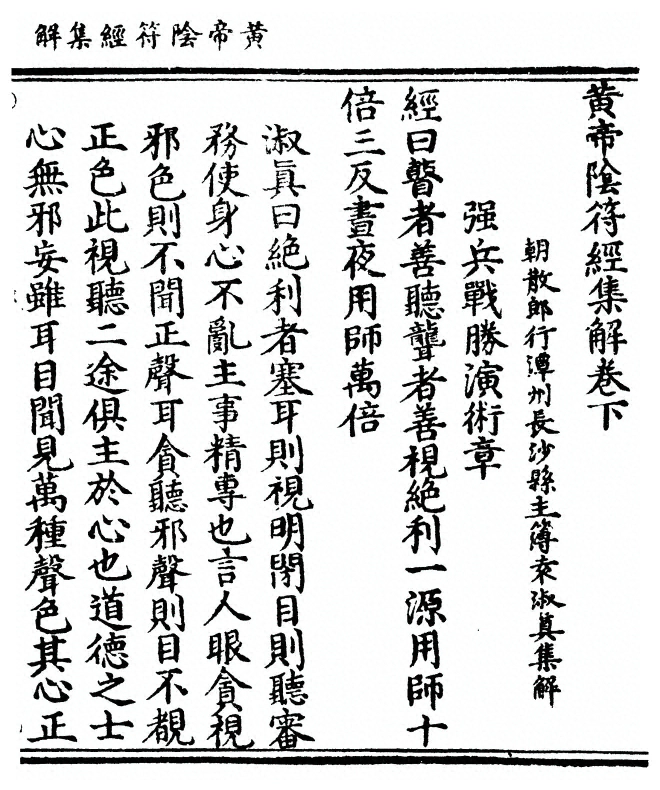 黃帝陰符經集解
黃帝陰符經集解卷下
朝散郎行潭州長沙縣主簿袁淑眞集解
强兵戰勝演術章
經曰瞽者善聽聾者善視絕利一源用師十
倍三反晝夜用師萬倍
淑眞曰絕利者塞耳則視明閉目則聽審
務使身心不亂主事精專也言人眼貪視
邪色則不聞正聲耳貪聽邪聲則目不覩
正色此視聽二途俱主於心也道德之士
心無邪妄雖耳目聞見萬種聲色其心正